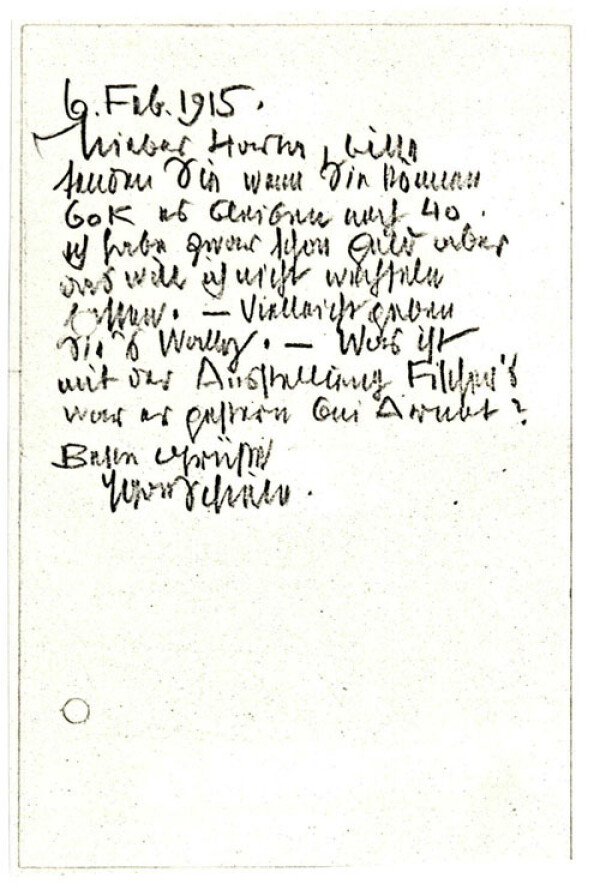 6. Feb. 1915.
Lieber Horn, bitte
senden Sie wenn Sie können
60 K es bleiben noch 40.
ich habe zwar schon Geld aber
das will ich nicht wechseln
lassen. – Vielleicht geben
Sie's Wally. – Was ist
mit der Ausstellung Fischer's
war er gestern bei Arnot?
Beste Grüße
Egon Schiele.